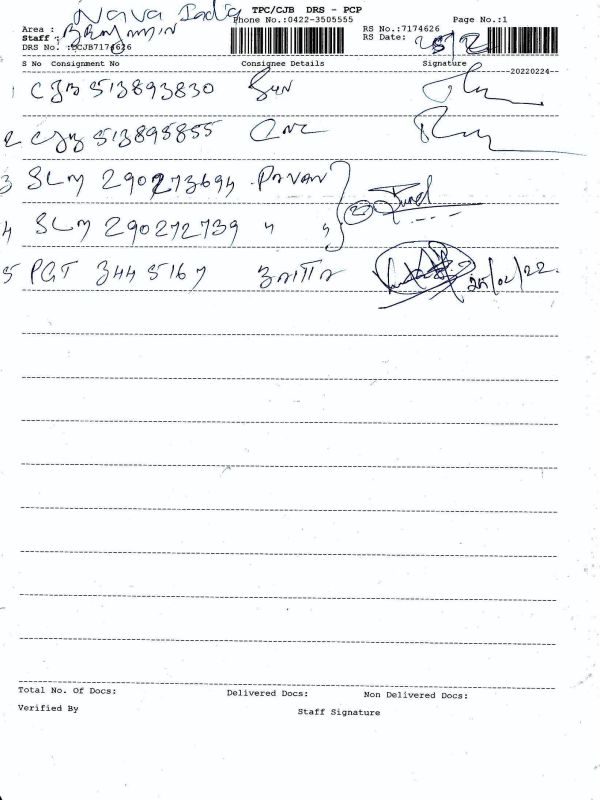 Nava India
TPC/CJB DRS - PCP
Area :
Phone No.:0422-3505555
Page No.:1
Staff :
DRS No. :DCJB7174626
RS No.:7174626
RS Date: 25/2
S No Consignment No Consignee Details Signature
20220224
1 CJB 513893830 Sun
2 CJB 513895855
3 SLM 290273694 Pavan
4 SLM 290272739 " "
5 PGT 3445167
25/02/22.
Total No. Of Docs: Delivered Docs: Non Delivered Docs:
Verified By Staff Signature